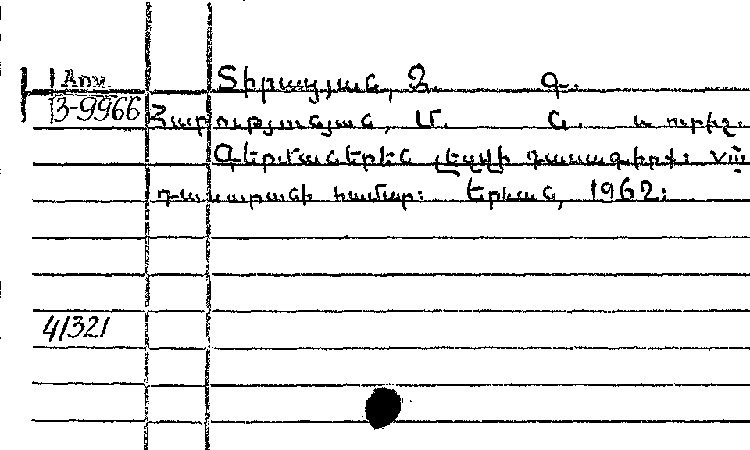 Arm.
3-9966
Տիրացյան, Զ. Գ.
Հարությունյան, Մ. Ն. և ուրիշ.
Գերմաներեն լեզվի դասագիրք: VIII
դասարանի համար: Երևան, 1962:
41321